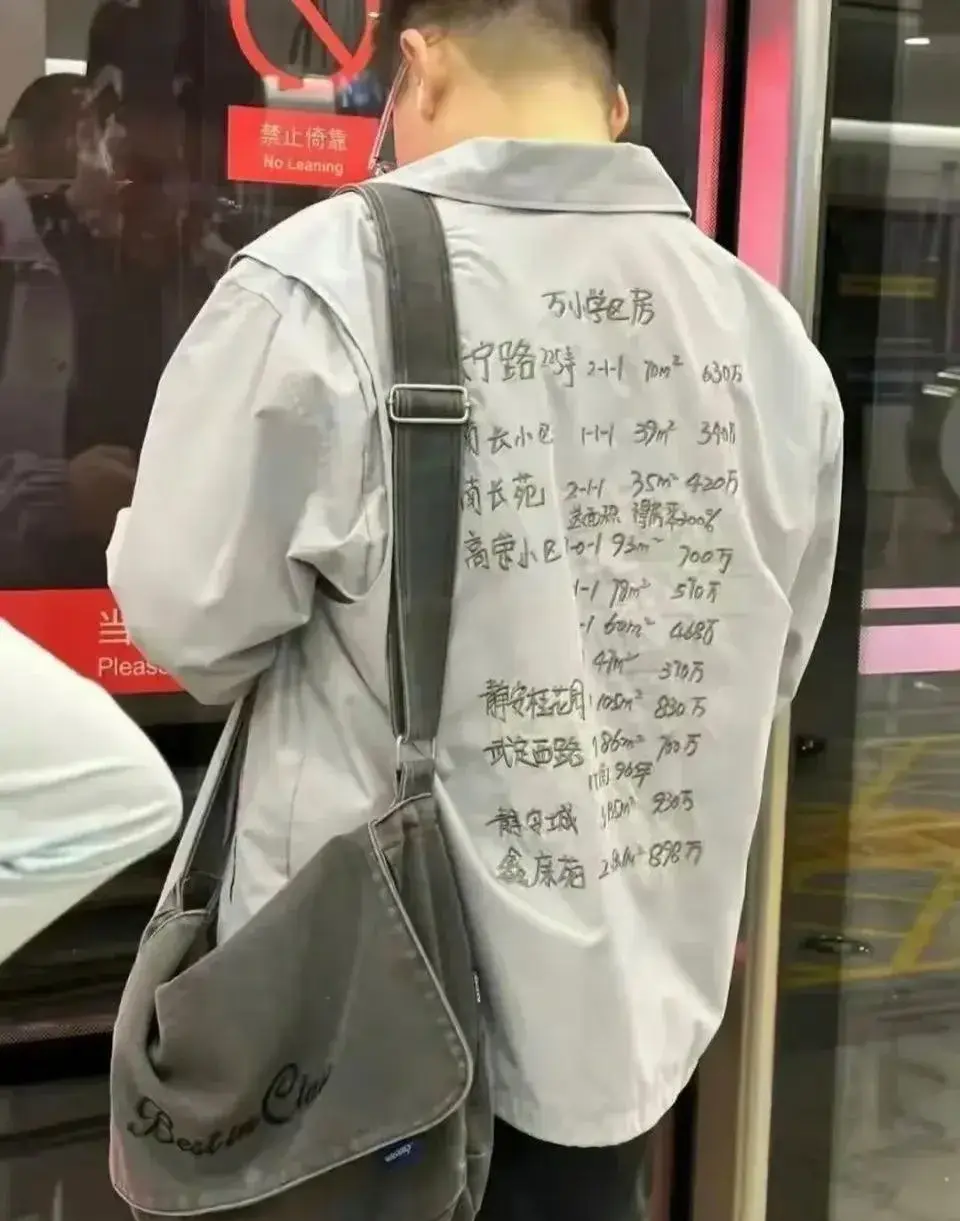 禁止倚靠
No Leaning
当
Pleas
万小学区房
长宁路225弄 2-1-1 70m² 630万
南长小区 1-1-1 39m² 340万
南长苑 2-1-1 35m² 420万
送面积 得房率200%
高荣小区 1-0-1 93m² 700万
1-1 78m² 570万
-1 60m² 468万
47m² 370万
静安桂花园 105m² 830万
武定西路 186m² 700万
96年
静安城 185m² 930万
鑫康苑 898万
Best in Clas